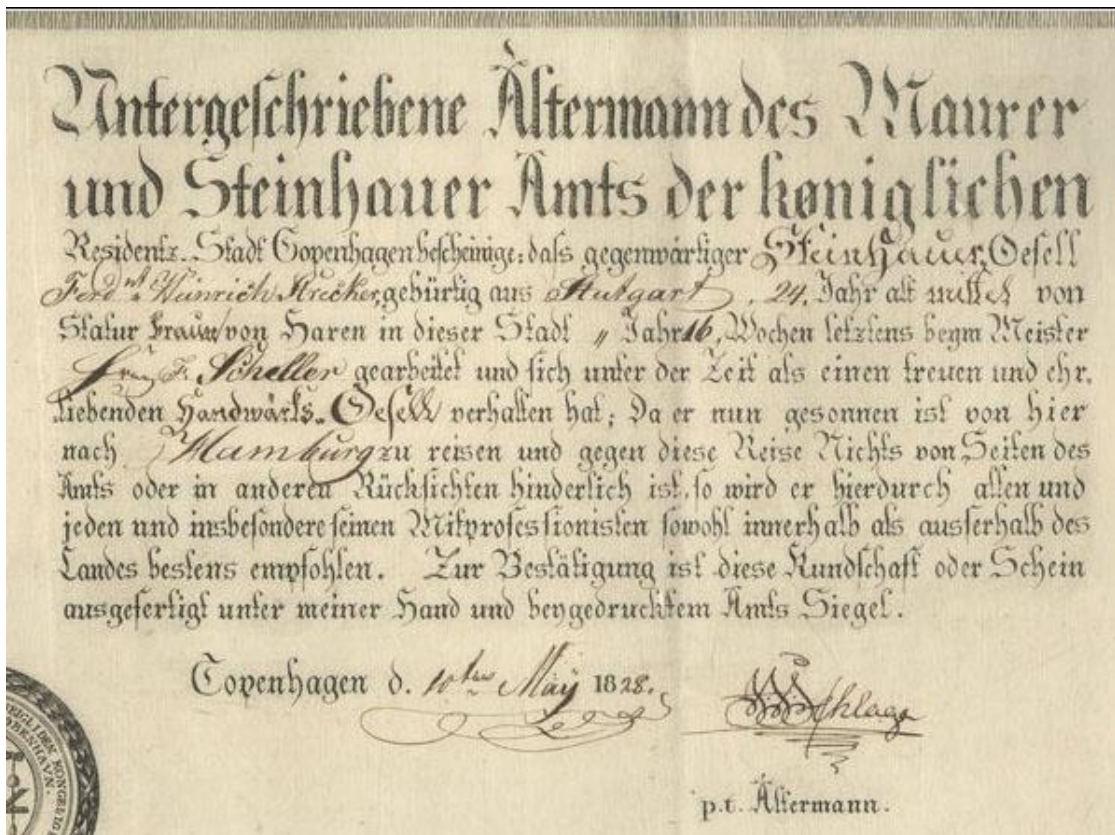 Untergeschriebene Ältermann des Maurer
und Steinhauer Amts der königlichen
Residentz-Stadt Copenhagen bescheinige: daſs gegenwärtiger Steinhauer, Gesell
Ferdnd Heinrich Strecker, gebürtig aus Stutgart, 24, Jahr alt mittel von
Statur braun von Haren in dieser Stadt " Jahr 16, Wochen letztens beym Meister
F. Scheller gearbeitet und sich unter der Zeit als einen treuen und ehr-
liebenden Handwärks-Gesell verhalten hat; Da er nun gesonnen ist von hier
nach Hamburg zu reisen und gegen diese Reise Nichts von Seiten des
Amts oder in anderen Rücksichten hinderlich ist, so wird er hierdurch allen und
jeden und insbesondere seinen Mitprofessionisten sowohl innerhalb als ausserhalb des
Landes bestens empfohlen. Zur Bestätigung ist diese Kundschaft oder Schein
ausgefertigt unter meiner Hand und beygedrucktem Amts Siegel.
Copenhagen d. 10ten May 1828.
p.t. Ältermann.